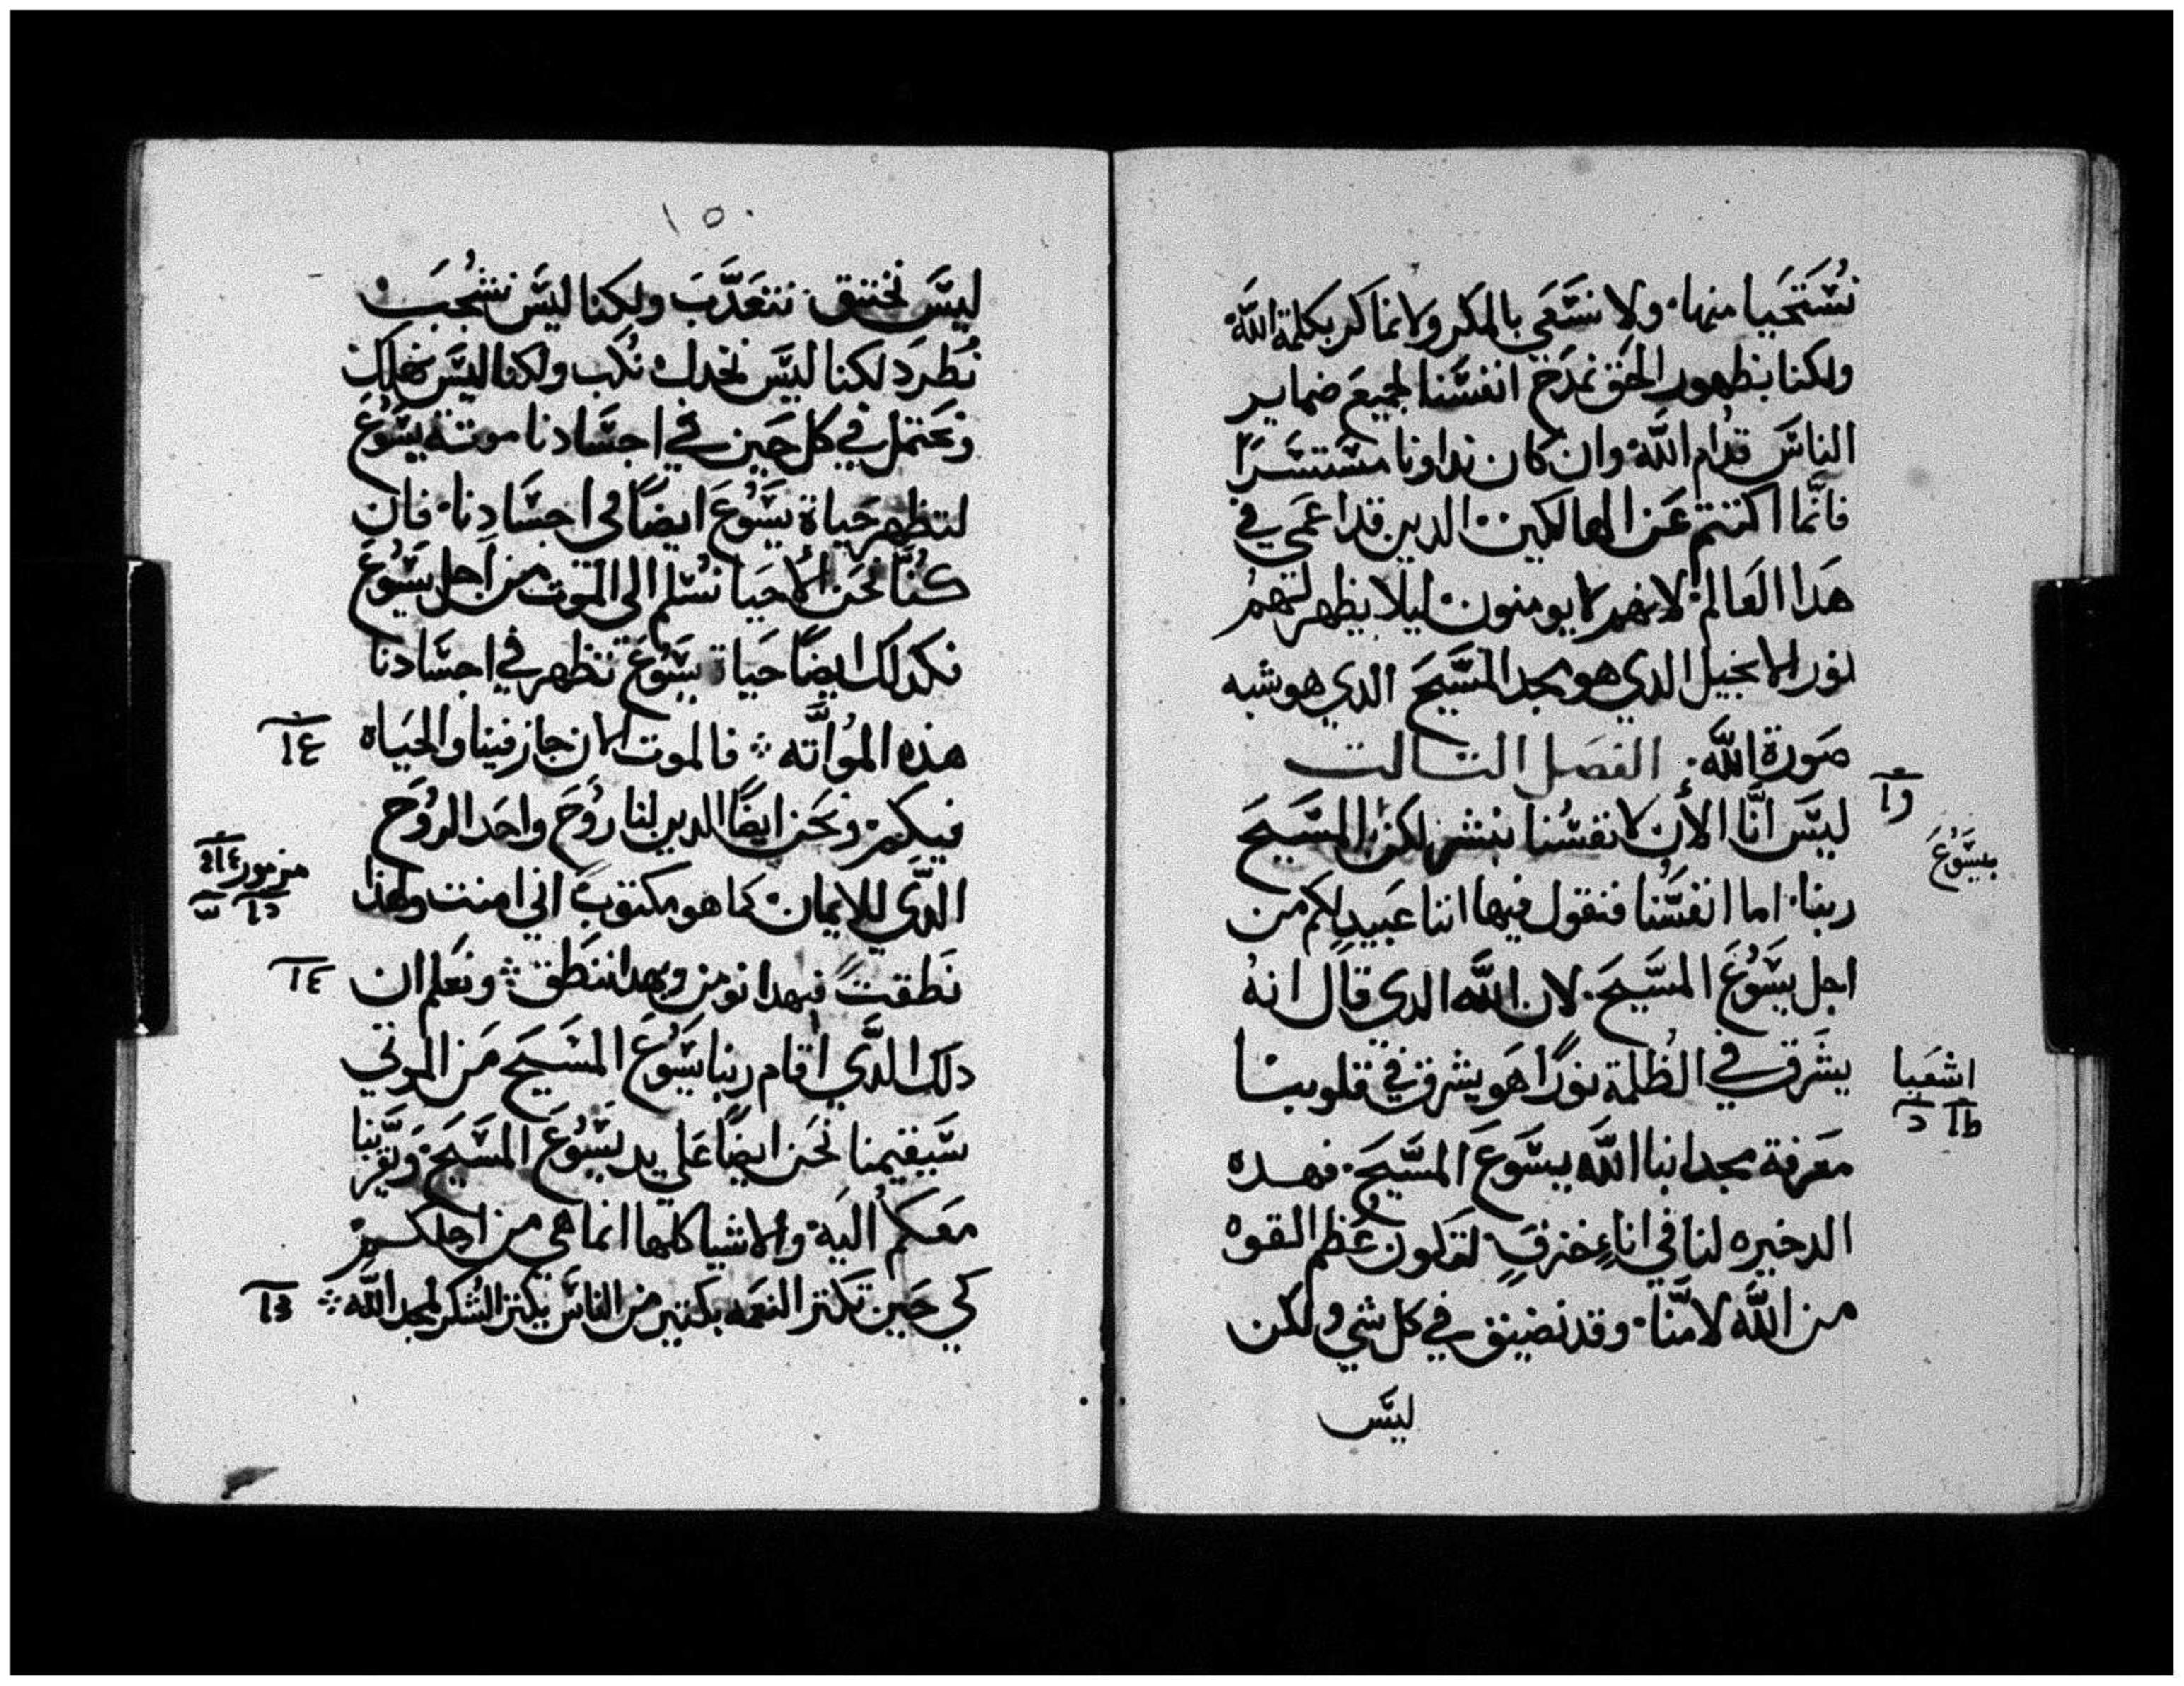 نُسْتَحَيا منها ولا نسَعَي بالمكر ولا نماكر بكلمة اللَّه
ولكنا بظهور الحَق نمدَح انفسَّنا لجميعَ ضماير
الناسَ قدام اللَّه وان كان نداونا مسْتتسَرًا
فانَّما اكتتم عَن الهالكين الدين قد اعمي في
هَدا العَالم لانهم لا يومنون ليلا يظهر لهم
نور الانجيل الدي هو مجد المسَّيحَ الدي هو شبه
صَورة اللَّه الفصَل التالت
ليسَ انَّا الأن لانفسُنا نبشر لكن المسَّيحَ
بيسَوعَ
ربنا اما انفسُنا فنقول فيها اننا عَبيد لكم من
اجل يسَوُعَ المسَّيحَ لان اللَّه الدي قال انهُ
يشَرق في الظُلمة نورًا هَو يشرق في قلوبنا
اشعَيا
مَعَرفة مجد ابنا اللَّه بيسَوعَ المسَّيحَ فهده
الدخيره لنا في اناءِ خزفٍ لتكون عُظم القوه
من اللَّه لا مَّنا وقد نضيق في كل شي ولكن
ليسَّ
١٥٠
ليسَّ نختنق نتعَدَّبَ ولكنا ليسَّ نشجُبَ
نُطرَد لكنا ليسَّ نخدل نُكب ولكنا ليسَّ نهلك
ونحَتمل في كل حَين في اجسَّادنا موتة يسَّوُعَ
لتظهر حَياة يسَّوُعَ ايضَاً في اجسَّادِنا فان
كُنَّا نَحَن الأحيَا نُسْلم الي الموت من اجل يسَّوُعَ
فكدلك ايضَاً حَياة يسَّوُعَ تظهر في اجسَّادنا
هذه المُواتَّه فالموت الان جاز فينا والحَياه ١٤
فيكم ونحَن ايضَاً الدين لنا روُحَ واحَد الروُحَ
مزمور
الدَّي للايمان كما هو مكتوبً اني امنت ولهذا
نَطقتً فبهدا نومن وبهدا ننَطق ونعَلم ان ١٤
دلك الدَّي اقام ربنا يسَّوُعَ المسَيحَ مَن الموتي
سَيقيمنا نحَن ايضَاً عَلي يد يسَّوُعَ المسَيحَ ويَقَرَّبنا
مَعَكم اليَه والاشيا كلها انما هي من اجلكم
كي حَين تكتر النعَمه بكتير من الناسَ يكتر الشُكر لمجد اللَّه